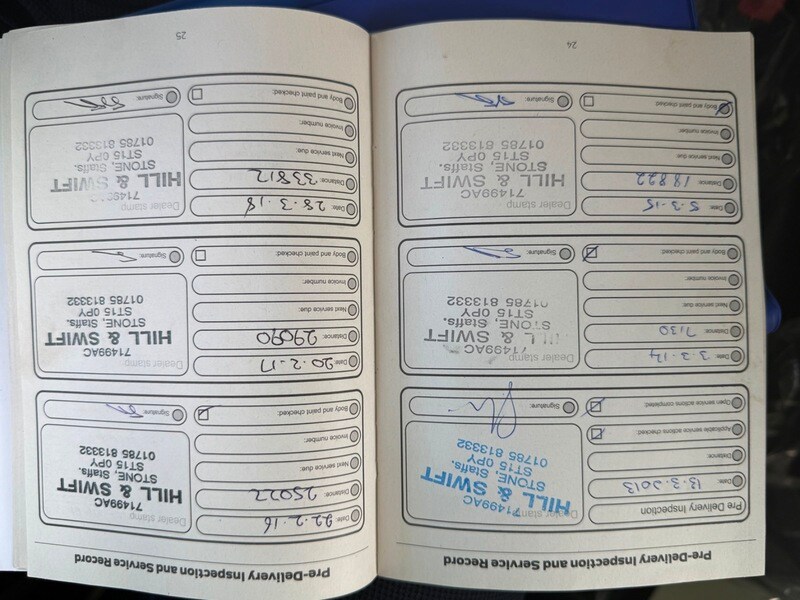 Pre-Delivery Inspection and Service Record
Pre Delivery Inspection
Date: 13.3.2013
Distance:
Applicable service actions checked:
Open service actions completed:
Dealer stamp
71499AC
HILL & SWIFT
STONE, Staffs.
ST15 0PY
01785 813332
Signature:
Date: 3-3-14
Distance: 7130
Next service due:
Invoice number:
Body and paint checked:
Dealer stamp
71499AC
HILL & SWIFT
STONE, Staffs.
ST15 0PY
01785 813332
Signature:
Date: 5.3.15
Distance: 18822
Next service due:
Invoice number:
Body and paint checked:
Dealer stamp
71499AC
HILL & SWIFT
STONE, Staffs.
ST15 0PY
01785 813332
Signature:
24
Pre-Delivery Inspection and Service Record
Date: 22.2.16
Distance: 25022
Next service due:
Invoice number:
Body and paint checked:
Dealer stamp
71499AC
HILL & SWIFT
STONE, Staffs.
ST15 0PY
01785 813332
Signature:
Date: 20.2.17
Distance: 29090
Next service due:
Invoice number:
Body and paint checked:
Dealer stamp
71499AC
HILL & SWIFT
STONE, Staffs.
ST15 0PY
01785 813332
Signature:
Date: 28.3.18
Distance: 33812
Next service due:
Invoice number:
Body and paint checked:
Dealer stamp
HILL & SWIFT
STONE, Staffs.
ST15 0PY
01785 813332
Signature:
25